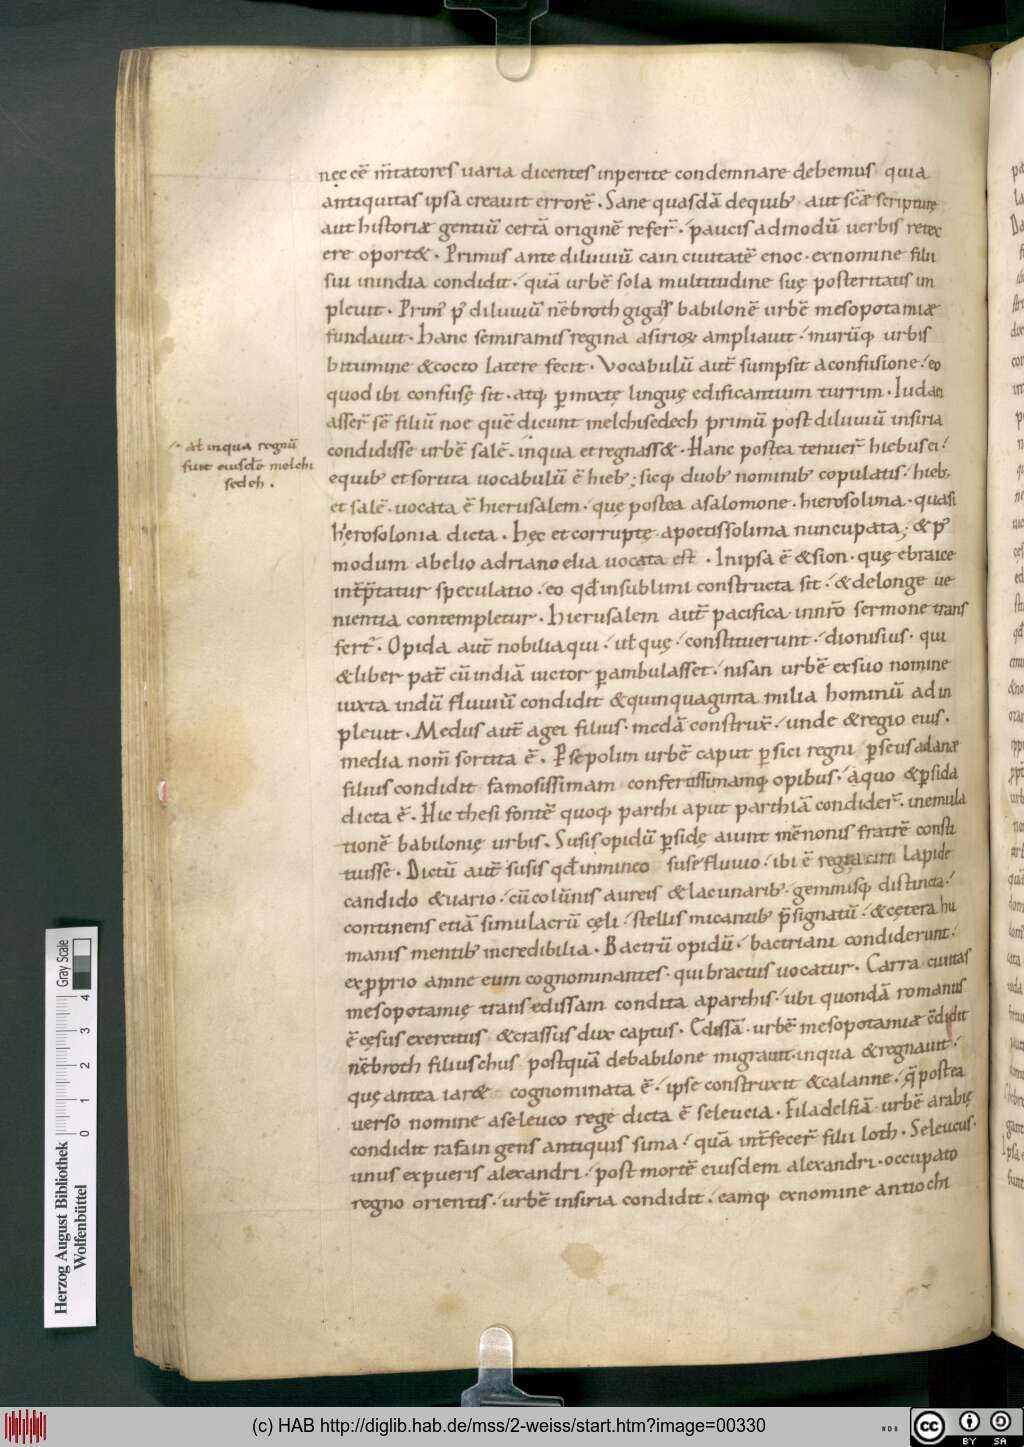 nęc eē m̄tatores uaria dicentes inperite condemnare debemus quia
antiquitas ipsā creauit errorē. Sane quasdā de quib; aut scāe scripturę
aut historiæ gentiū certā originē refer̄. paucis admodū uerbis retex
ere oport&. Primus ante diluuiū cain ciuitatē enoc. ex nomine filii
sui in india condidit. quā urbē sola multitudine suę posteritatis in
pleuit. Prim' p' diluuiū nēbroth gigas babilonē urbē mesopotamiæ
fundauit. hanc semiramis regina asirioꝝ ampliauit. murūq; urbis
bitumine & cocto latere fecit. Vocabulū aut̄ sumpsit a confusione. eo
quod ibi confusę sit. atq; ꝑmixtę linguę edificantium turrim. Iudaei
asser̄ sē filiū noe quē dicunt melchisedech primū post diluuiū in siria
condidisse urbē salē. in qua et regnass&. Hanc postea tenuer̄ hiebusei.
e quib; et sortita uocabulū ē hieb; sicq; duob; nominib; copulatis. hieb;
et salē. uocata ē hierusalem. quę postea a salomone. hierosolima. quasi
hyerosolonia dicta. hęc et corruptę a poetis solima nuncupata; & p'
modum ab elio adriano elia uocata est. In ipsa ē & sion. quę ebraice
int̄p̄tatur speculatio. eo qđ in sublimi constructa sit. & de longe ue
nientia contempletur. hierusalem aut̄ pacifica in nr̄o sermone trans
fert'. Opida aut̄ nobilia qui. uł quę. constituerunt. dionisius. qui
& liber pat̄ cū indiā uictor ꝑambulasset. nisan urbē ex suo nomine
iuxta indū fluuiū condidit & quinquaginta milia hominū ad in
pleuit. Medus aut̄ agei filius. medā construx̄. unde & regio eius.
media nom̄ sortita ē. Ꝑsepolim urbē caput ꝑsici regni ꝑseus adanæ
filius condidit famosissimam confertissimamq; opibus. a quo & ꝑsida
dicta ē. Hic thesi fontē quoq; parthi aput parthiā condider̄. in emula
tionē babilonię urbis. Susis opidū ꝑsidę aiunt mēnonis fratrē consti
tuisse. Dictū aut̄ susis qđ inmineo suse fluuio. ibi ē regia ciri lapide
candido & uario. cū colūnis aureis & lacunarib; gemmisq; distincta.
continens etiā simulacrū cęli. stellis micantib; p̄signatū. & cętera hu
manis mentib; incredibilia. Bactrū opidū. bactriani condiderunt.
ex ꝓprio amne eum cognominantes. qui bractus uocatur. Carra ciuitas
mesopotamię trans edissam condita a parthis. ubi quondā romanus
ē cęsus exercitus & crassus dux captus. Edissā. urbē mesopotamiæ ēdidit
nēbroth filius chus postquā de babilone migrauit. in qua & regnauit.
quę antea iare& cognominata ē. ipse construxit & calanne. q̄ postea
uerso nomine a seleuco rege dicta ē seleucia. Filadelfiā urbē arabię
condidit rafain gens antiquis sima. quā int̄fecer̄ filii loth. Seleucus.
unus ex pueris alexandri. post mortē eiusdem alexandri. occupato
regno orientis. urbē in siria condidit. eamq; ex nomine antiochi
at in qua regnū
fuit eiusdē melchi
sedeh.
Herzog August Bibliothek
Wolfenbüttel
0 1 2 3 4
Gray Scale
(c) HAB http://diglib.hab.de/mss/2-weiss/start.htm?image=00330
cc BY SA